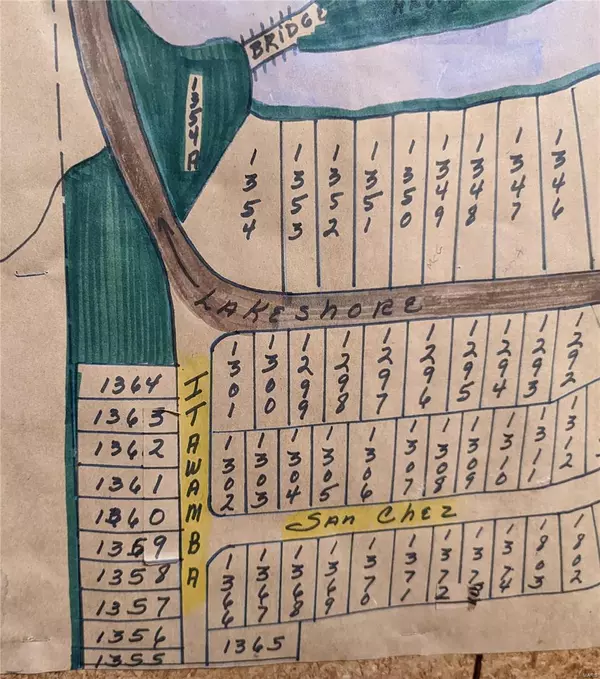 BRIDGE
1354A
1354
1353
1352
1351
1350
1349
1348
1347
1346
LAKESHORE
1301
1300
1299
1298
1297
1296
1295
1294
1293
1292
ITAWAMBA
1364
1363
1362
1361
1360
1359
1358
1357
1356
1355
1302
1303
1304
1305
1306
1307
1308
1309
1310
1311
1312
SAN CHEZ
1366
1367
1368
1369
1370
1371
1372
1374
1803
1802
1365